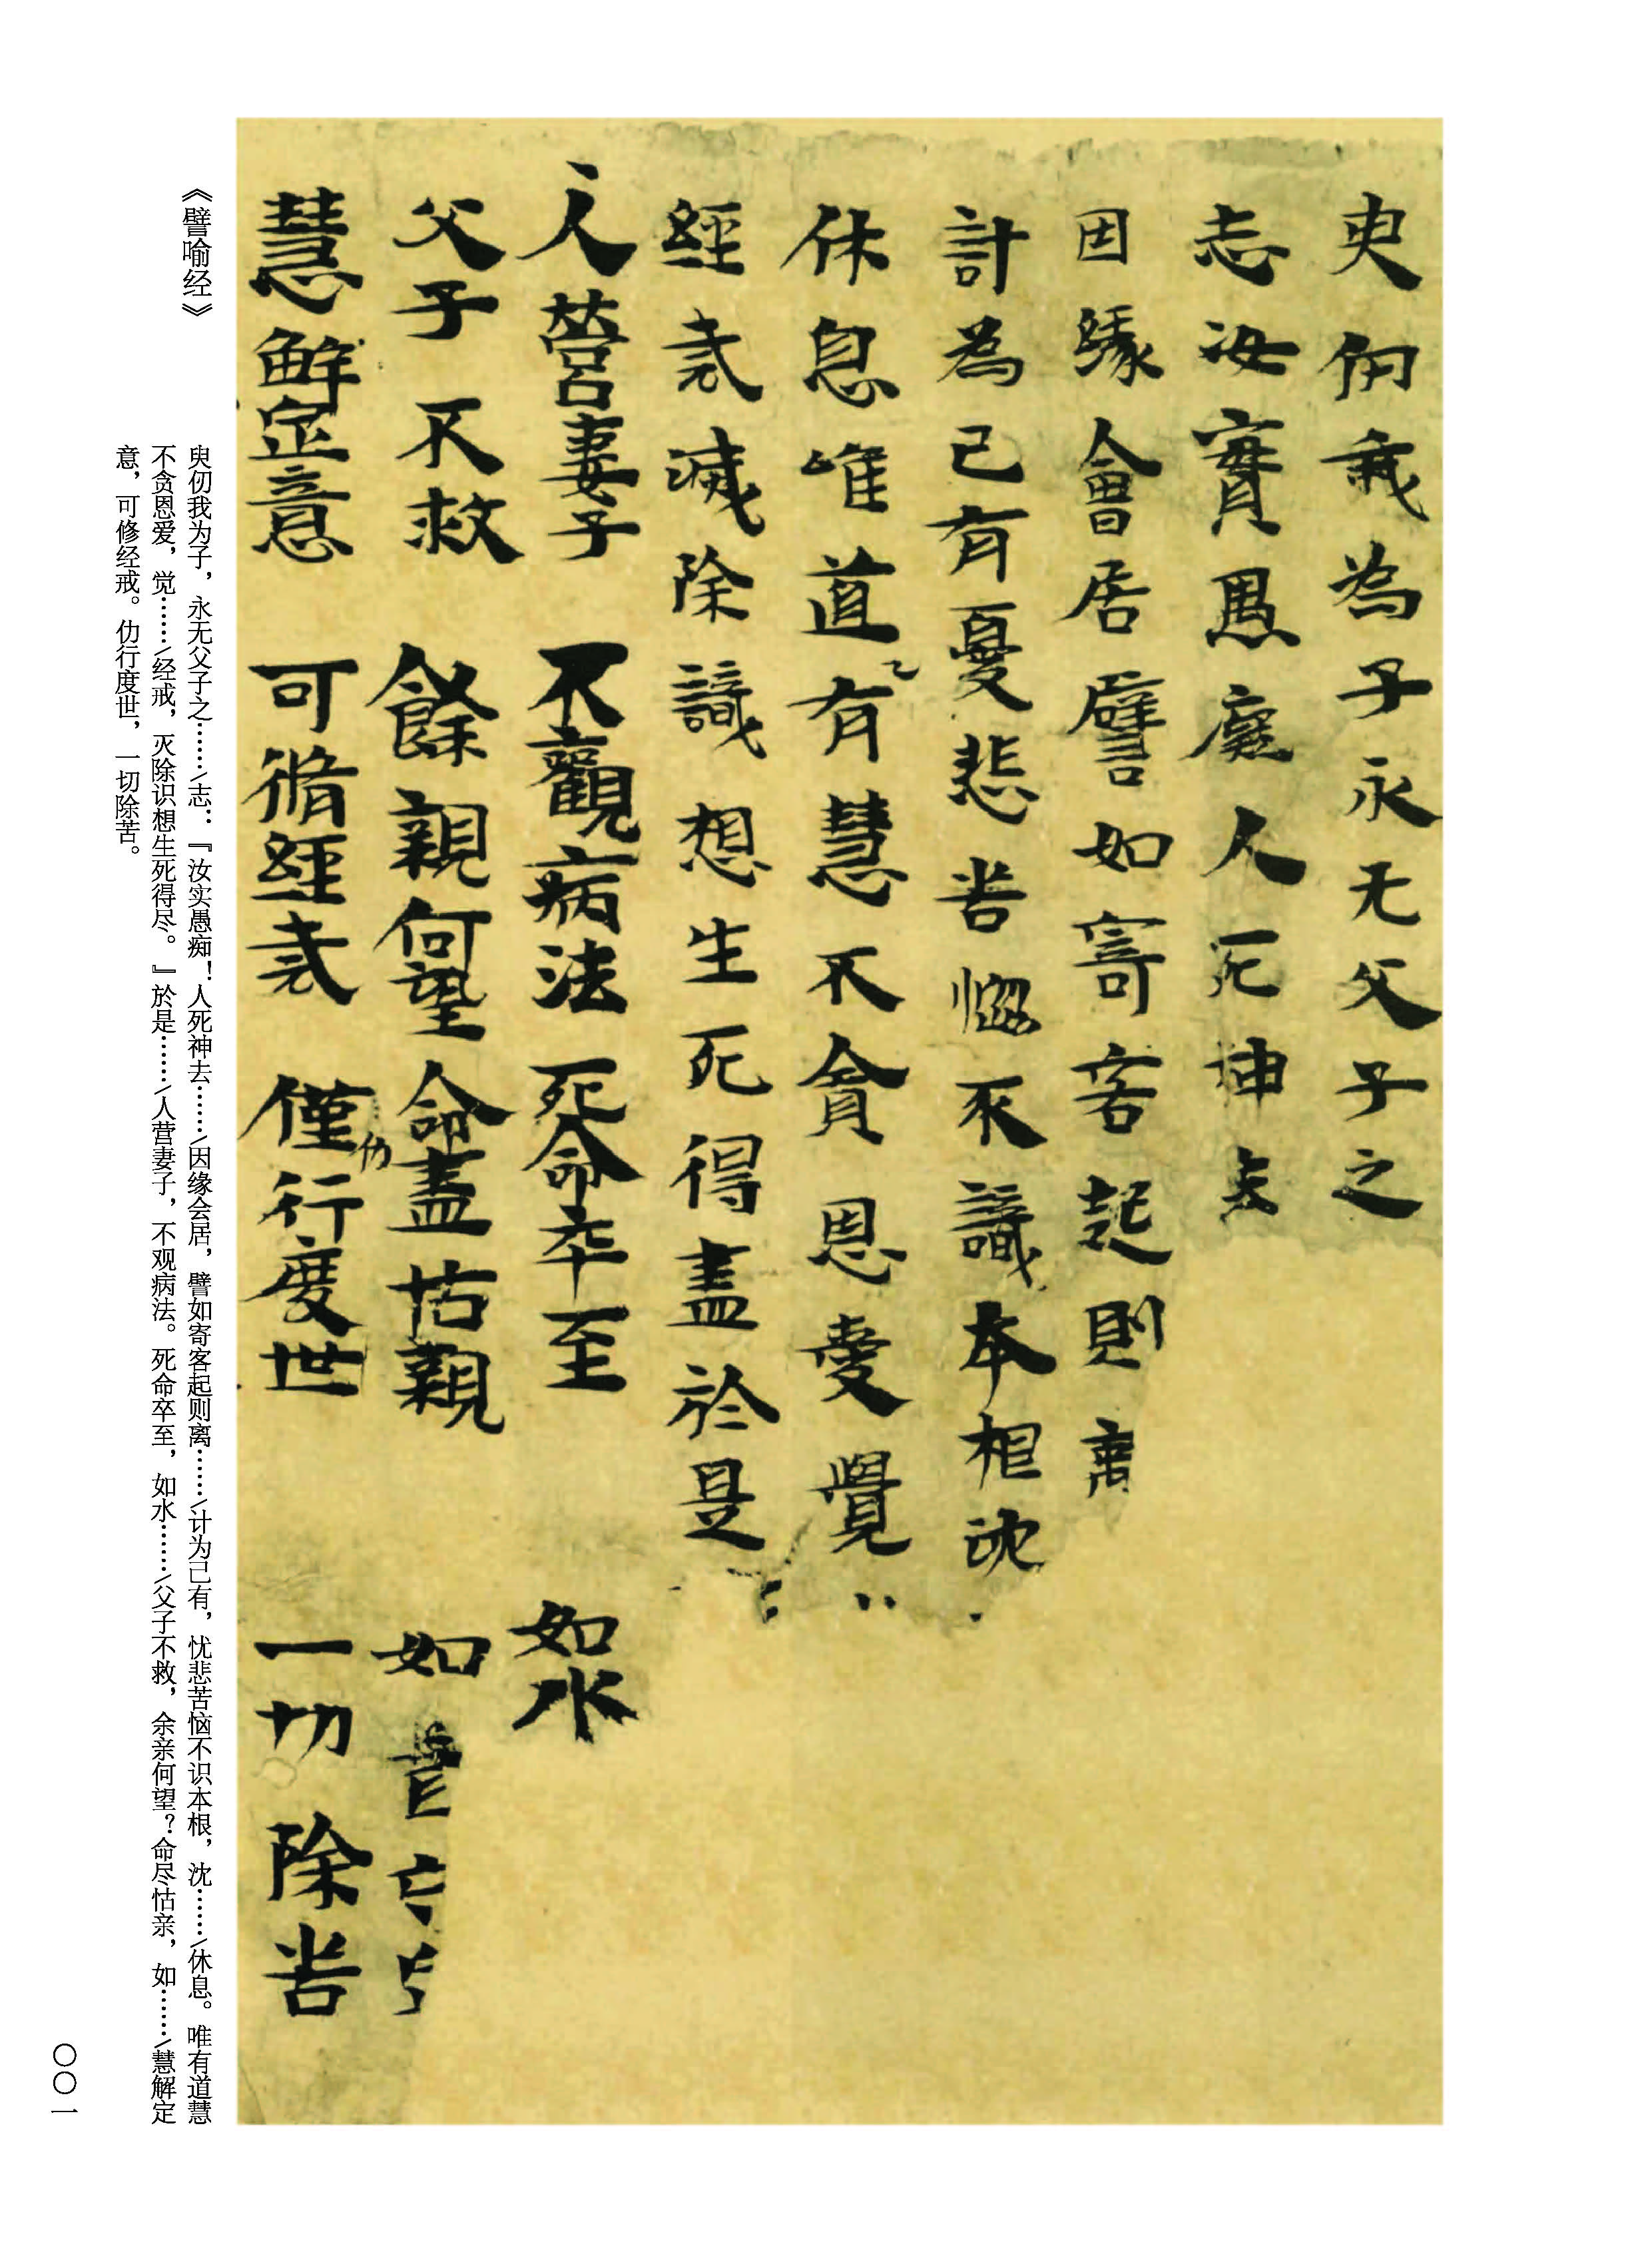 臾仞我為子永无父子之
志汝實愚癡人死神去
因緣會居譬如寄客起則離
計為己有憂悲苦惱不識本根沈
休息唯道有慧不貪恩愛覺
經戒滅除識想生死得盡於是
人營妻子不觀病法死命卒至如水
父子不救餘親何望命盡怙親如
慧解定意可脩經戒僅行度世一切除苦
仂
《譬喻经》
臾仞我为子，永无父子之……/志：『汝实愚痴！人死神去……/因缘会居，譬如寄客起则离……/计为己有，忧悲苦恼不识本根，沈……/休息。唯有道慧
不贪恩爱，觉……/经戒，灭除识想生死得尽。』於是……/人营妻子，不观病法。死命卒至，如水……/父子不救，余亲何望？命尽怙亲，如……/慧解定
意，可修经戒。仂行度世，一切除苦。
〇〇一